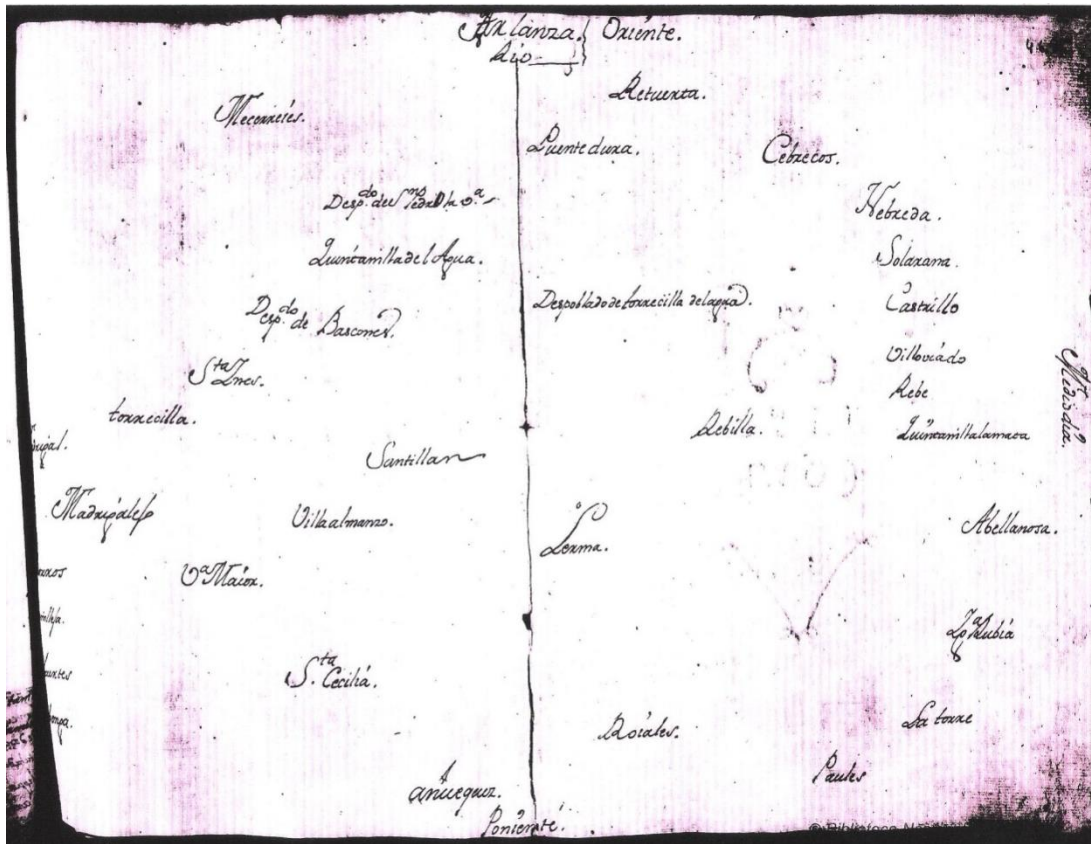 Arlanza. Oriente.
Rio
Retuerta.
Mecerreies.
Puentedura.
Cebrecos.
Desp.do del
Nebreda.
Quintanilla del Agua.
Solarana.
Despoblado de torrecilla del agua.
Castrillo
Desp.do de Bascones.
Villoviado
Mediodia.
S.ta Ines.
Rebe
torrecilla.
Rebilla.
Quintanillalamaca
Santillan
Madrigalejo
Villaalmanzo.
Lerma.
Abellanosa.
V.a Maior.
Rubia
S.ta Cecilia.
La torre
Roiales.
Paules
Poniente.
© Biblioteca